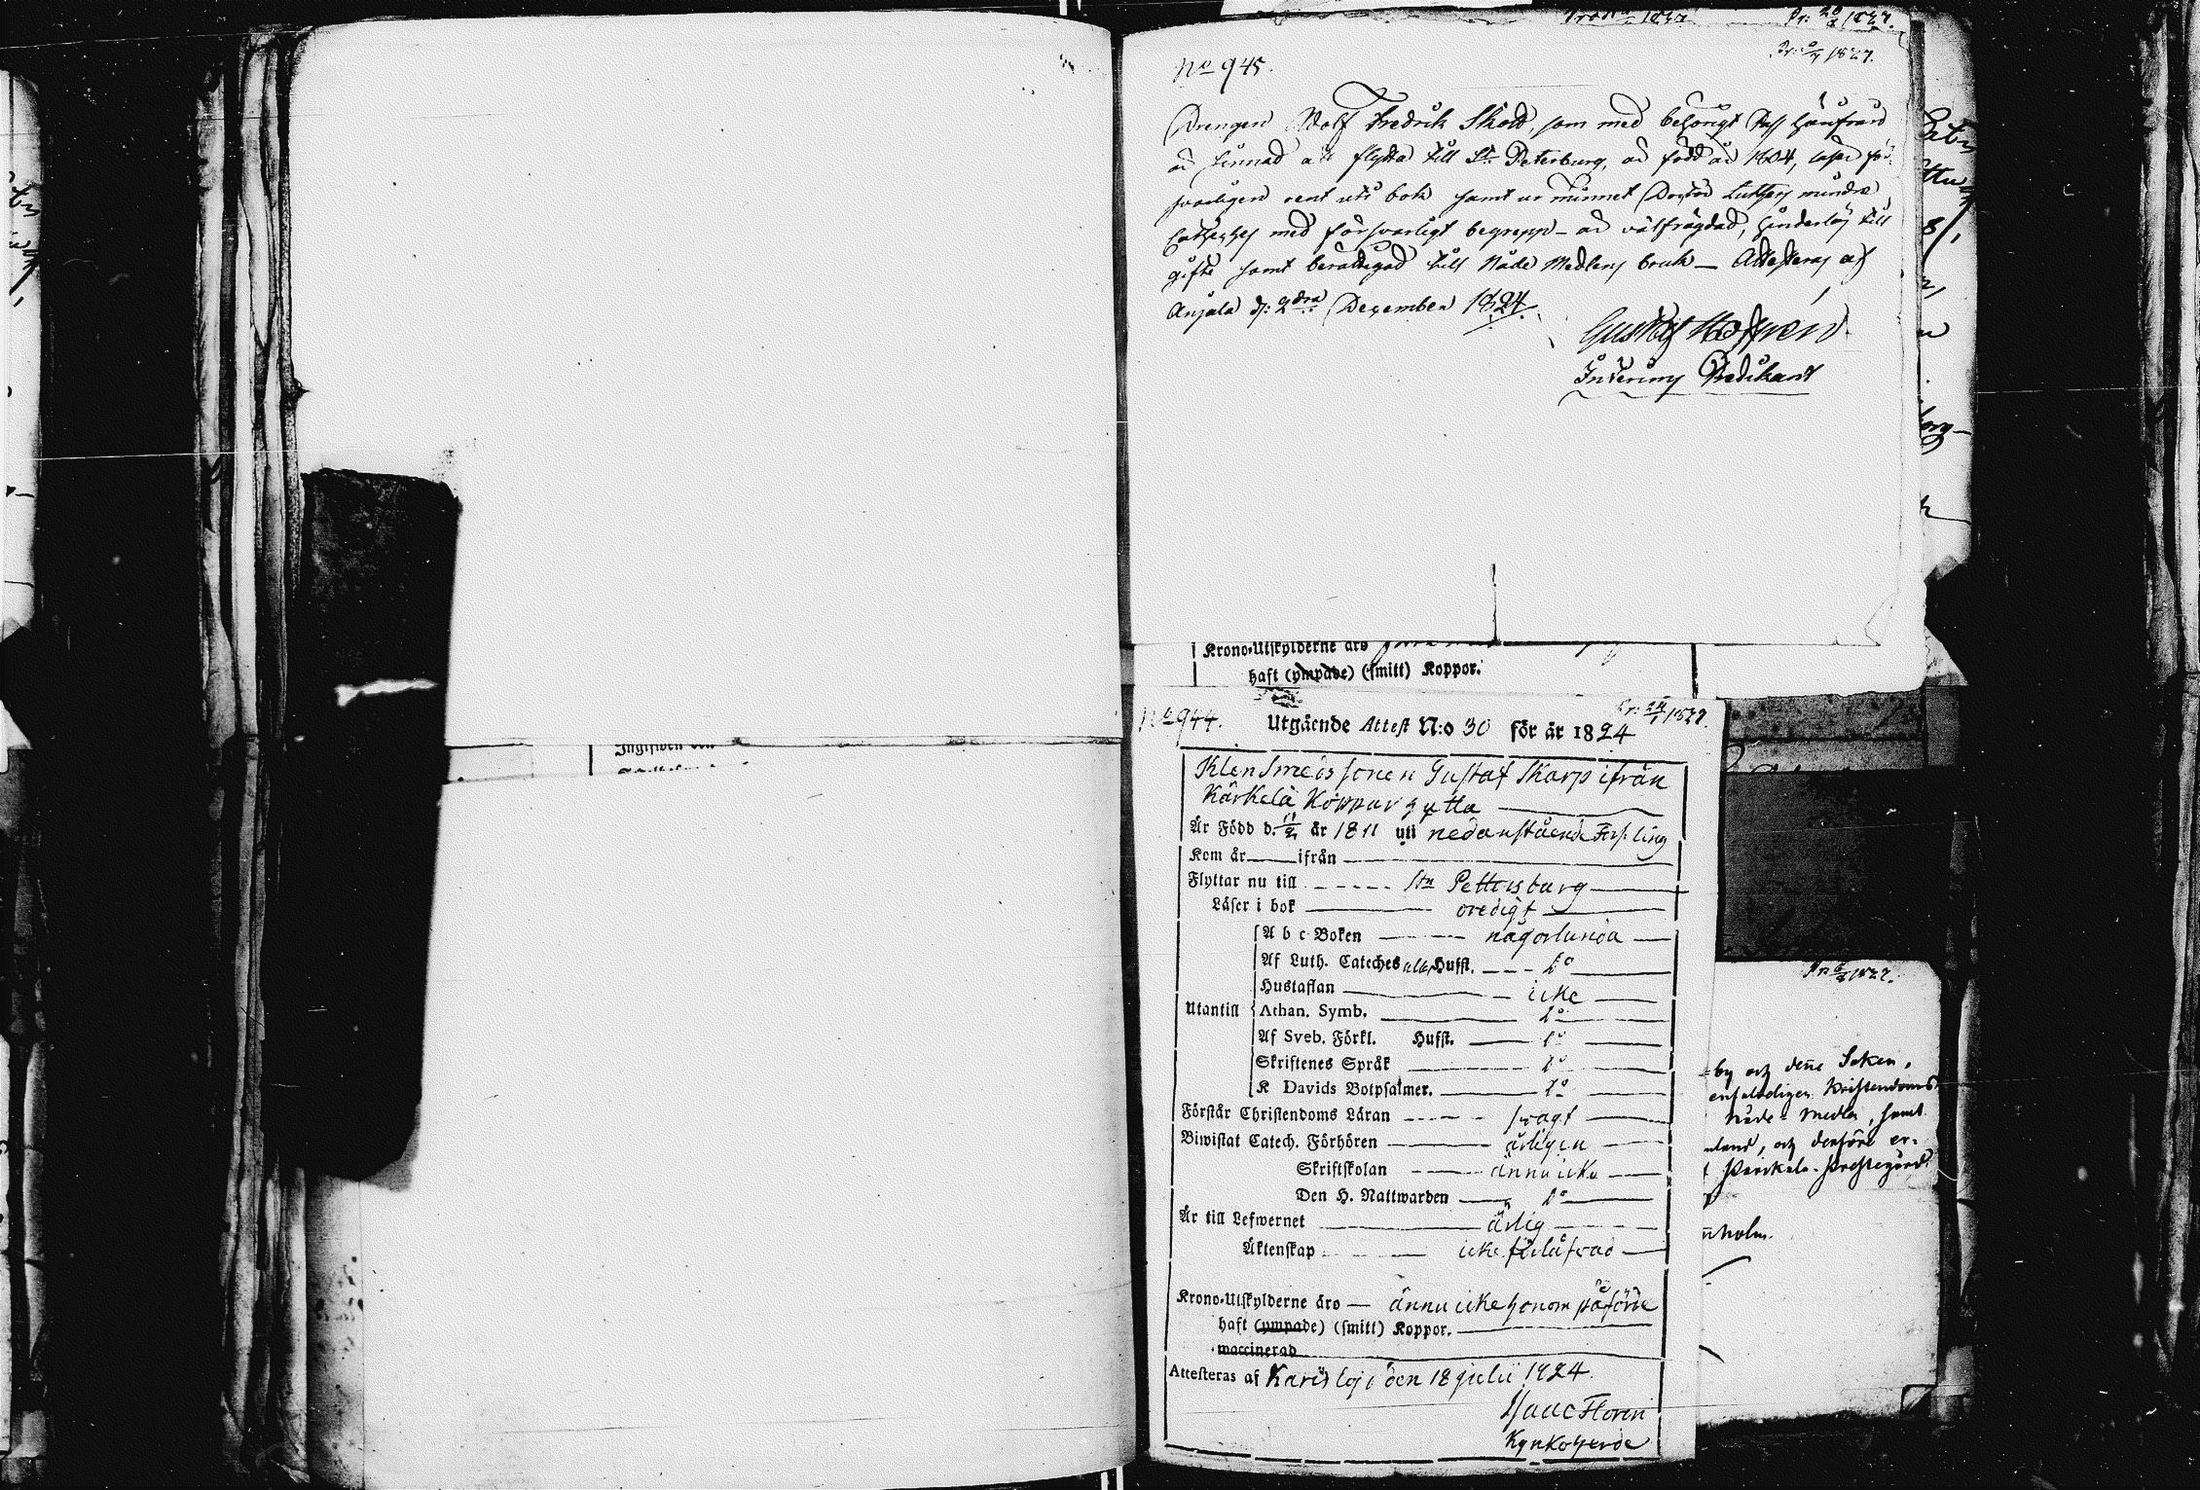 No 945.
Pr: 6/4 1827.
Drengen Adolf Fredrik Sköld, som med behörigt Pass härifrån
är sinnad att flytta till St Peterburg, är född år 1804, läser för-
svarligen rent uti bok samt ur minnet Doctor Luthers mindre
Catheches med försvarligt begrepp – är välfrägdad, hinderlös till
gifte samt berättigad till Nåde Medlens bruk — Attesteras af
Anjala d: 2dra December 1824.
Gustaf
Interims Predikant
Krono-Utskylderne äro
haft (ympade) (smitt) Koppor.
No 944.
1827.
Utgående Attest N:o 30 för år 1824
Klensmeds sonen Gustaf Skarp ifrån
Kärkelä Koppar hytta
Är Född d. år 1811 uti nedanstående Försling
Kom år ifrån
Flyttar nu till St Pettersburg
Läser i bok oredigt
A b c Boken någorlunda
Af Luth. Cateches utan Husst. do
Hustaflan icke
Utantill Athan. Symb. do
Af Sveb. Förkl. Husst. do
Skriftenes Språk do
K Davids Botpsalmer. do
Förstår Christendoms Läran svagt
Biwistat Catech. Förhören årligen
Skriftskolan ännu icke
Den H. Nattwarden do
Är till Lefwernet ärlig
Äktenskap icke förlåfvad
Krono-Utskylderne äro — ännu icke honom påförde
haft (ympade) (smitt) Koppor.
waccinerad
Attesteras af Karislojo den 18 julii 1824.
Isaac Floren
Kyrkoherde
1827.
by och denne Soken,
enfaldigen Kristendoms
Nåde-Medlen, samt
land, och derföre er-
Prestegård
holm.